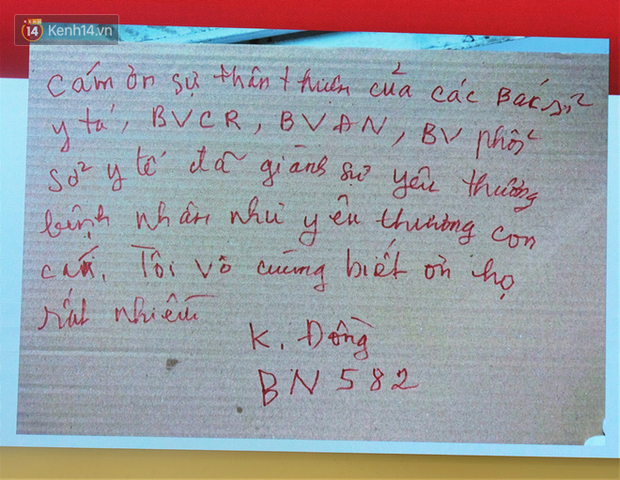 14 Kenh14.vn
cảm ơn sự thân thiện của các Bác sĩ
y tá, BVCR, BVAN, BV phổi
sở y tế đã giành sự yêu thương
bệnh nhân như yêu thương con
cái. Tôi vô cùng biết ơn họ
rất nhiều
K. Đông
BN 582